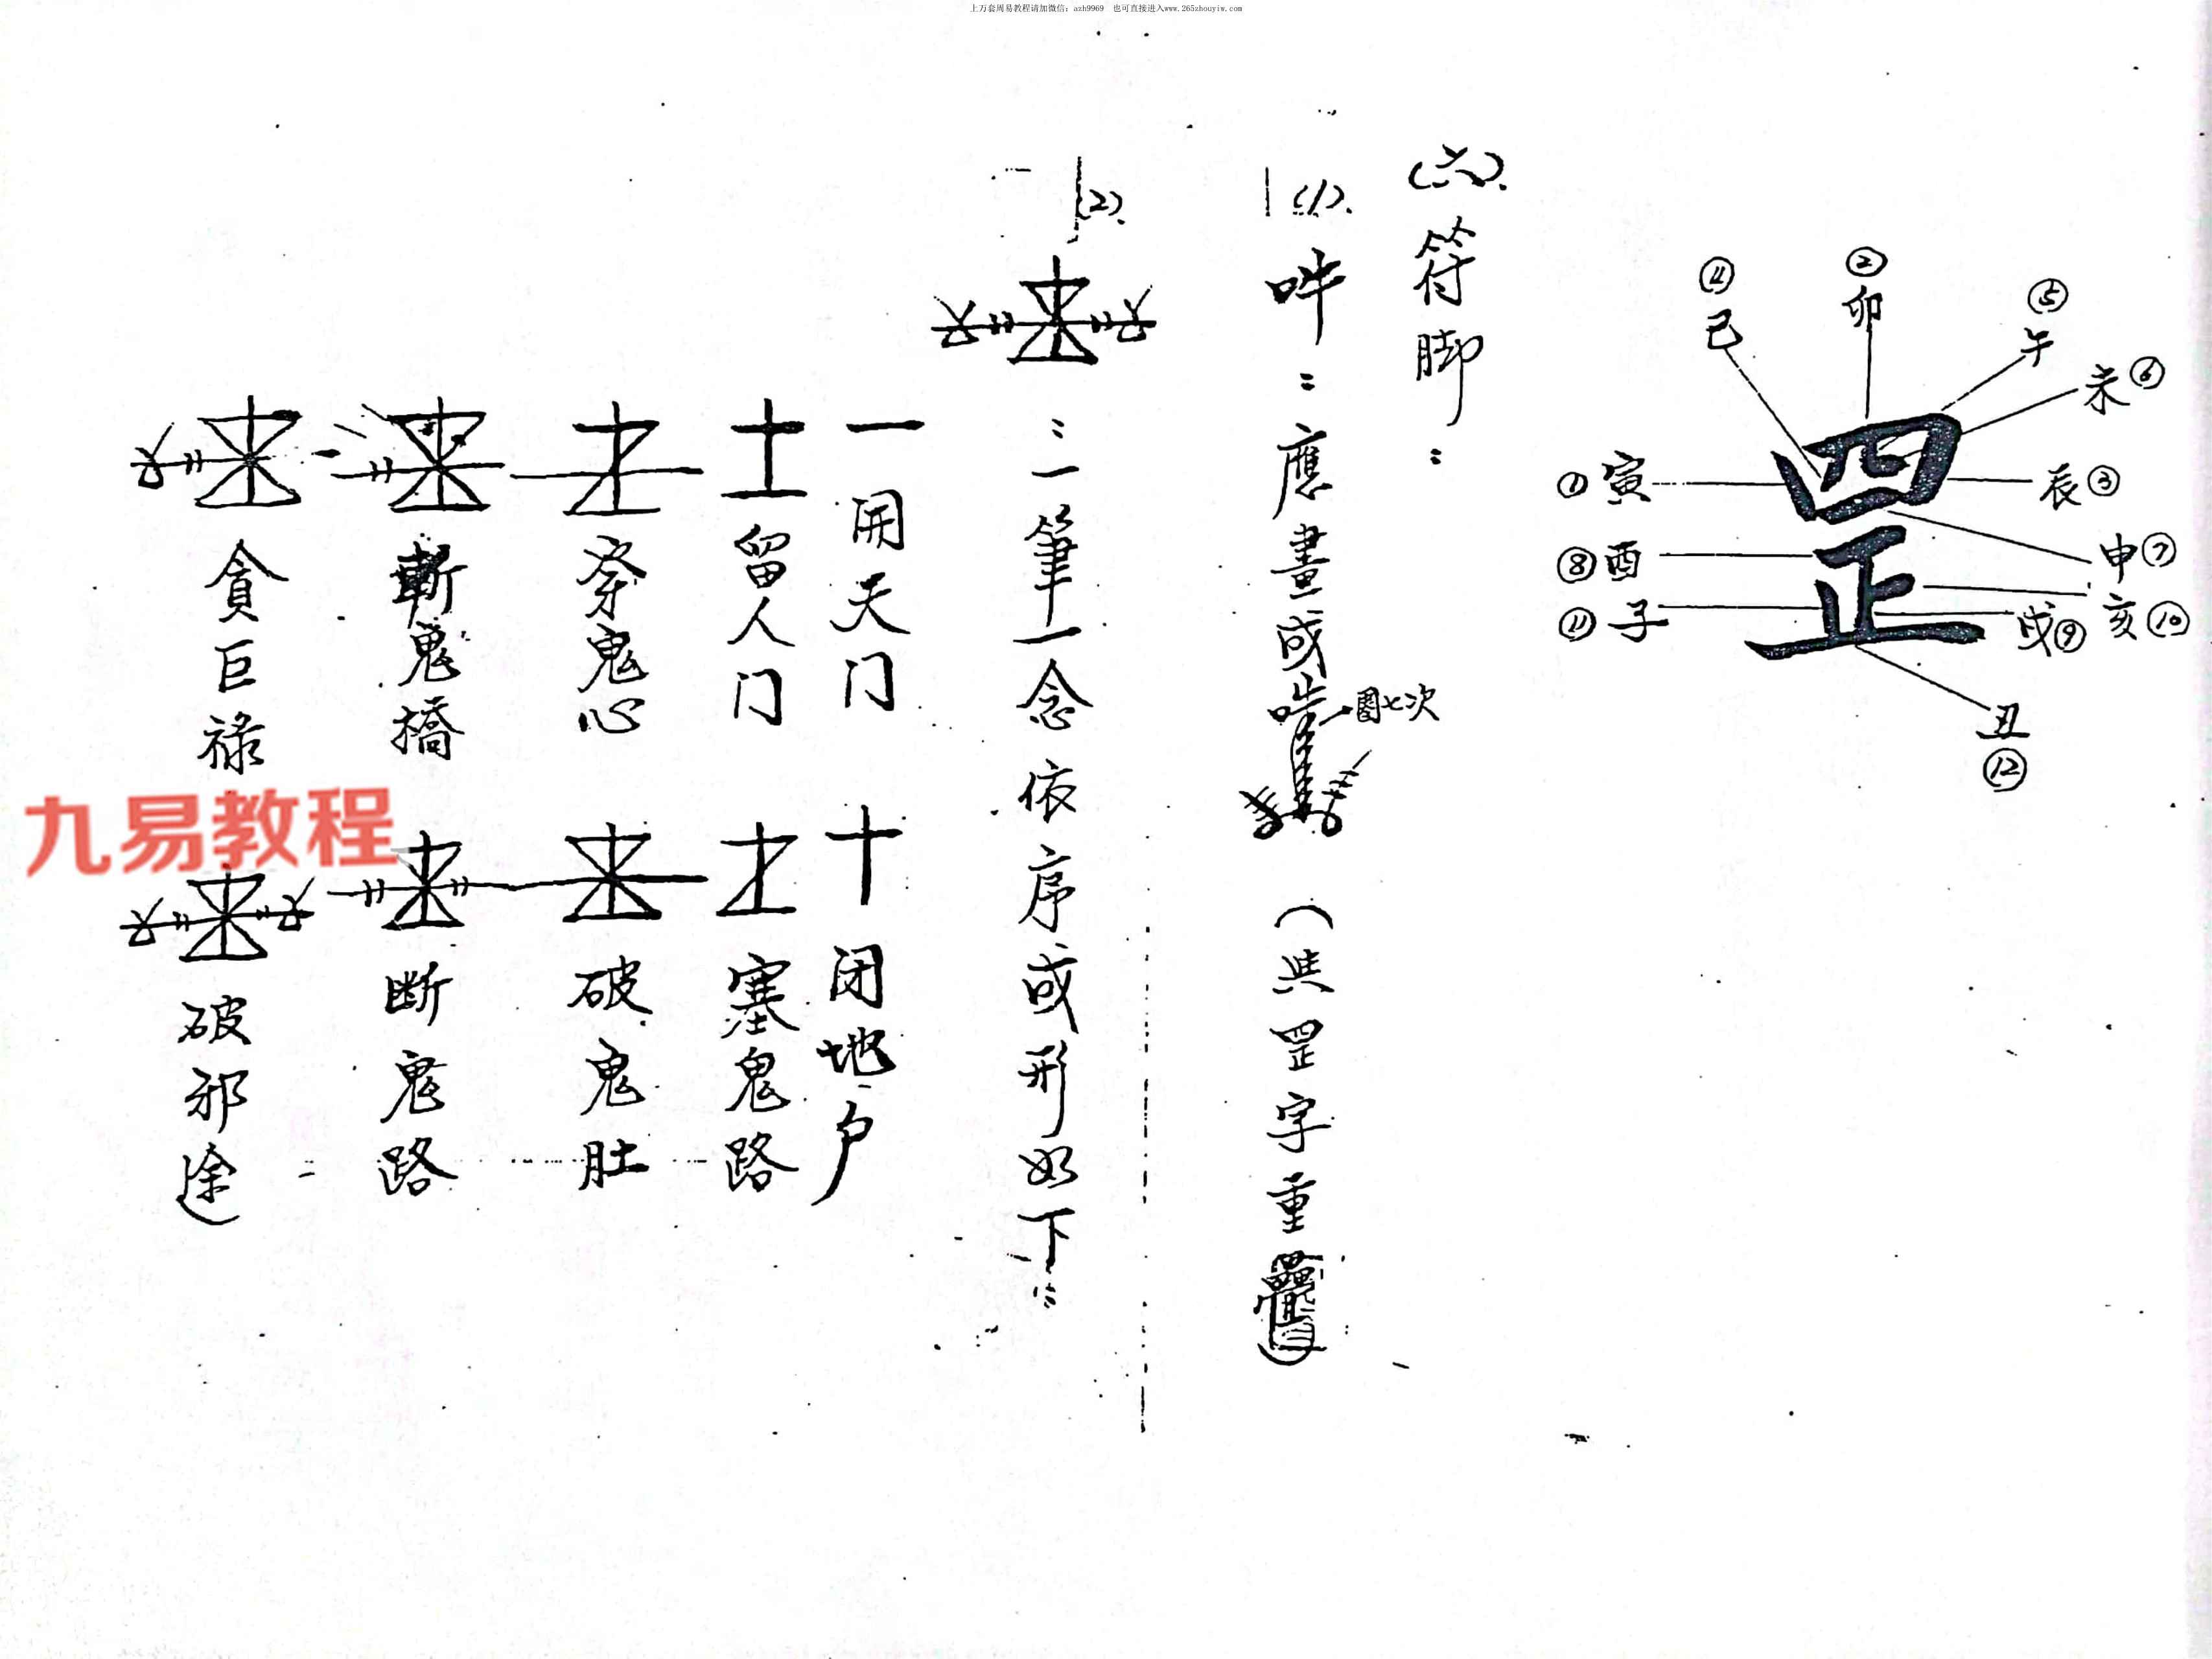 上万套周易教程请加微信：azh9969 也可直接进入www.265zhouyiw.com
④ 巳
② 卯
⑤ 午
未 ⑥
① 寅
辰 ③
⑧ 酉
申 ⑦
⑪ 子
戌 ⑨
亥 ⑩
丑 ⑫
罡
(六).符脚：
(1).吽：應畫成
圈七次
(共罡字重疊)
(2).：一筆一念依序成形如下：
一 開天门
十 闭地户
土 留人门
塞鬼路
穿鬼心
破鬼肚
斬鬼橋
断鬼路
貪巨祿
破邪途
九易教程